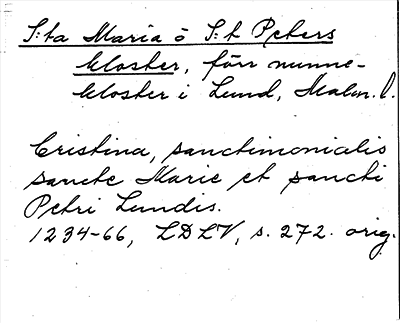 S:ta Maria o S:t Peters
kloster, förr nunne-
kloster i Lund, Malm. l.
Cristina, sanctimonialis
sancte Marie et sancti
Petri Lundis.
1234-66, LDLV, s. 272. orig.